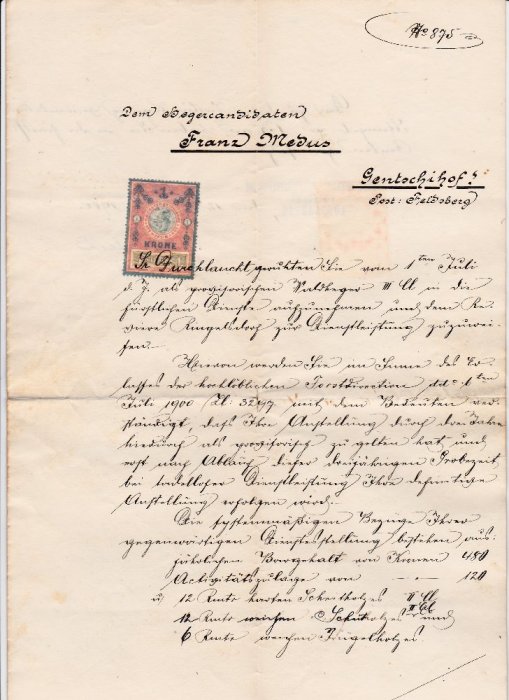 No 875
Dem Hegercandidaten
Franz Medus
Gentschihof!
Post: Feldsberg
1
KRONE
Sr Durchlaucht geruhten Sie vom 1ten Juli
d. J. als provisorischen Waldheger III Cl. in die
fürstlichen Dienste aufzunehmen und dem Re-
viere Ringelsdorf zur Dienstleistung zuzuwei-
sen.
Hievon werden Sie im Sinne des Er-
lasses der hochlöblichen Forstdirection ddo 1ten
Juli 1900 Zl. 3247 mit dem Bedeuten ver-
ständigt, dass Ihre Anstellung durch drei Jahre
hiedurch als provisorisch zu gelten hat, und
erst nach Ablauf dieser dreijährigen Probezeit
bei tadelloser Dienstleistung Ihre definitive
Anstellung erfolgen wird.
Die systemmäßigen Bezüge Ihrer
gegenwärtigen Dienstesstellung bestehen aus:
jährlichen Bargehalt von Kronen 480
Activitätszulage von — 120
12 Rmtr harten Scheitholzes II Cl
12 Rmtr weichen II Cl und
6 Rmtr weichen Prügelholzes.